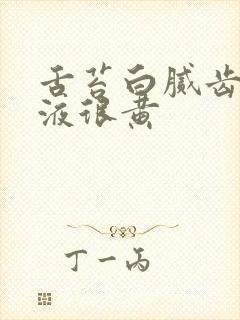 舌苔白腻齿
液很黄
丁一丙